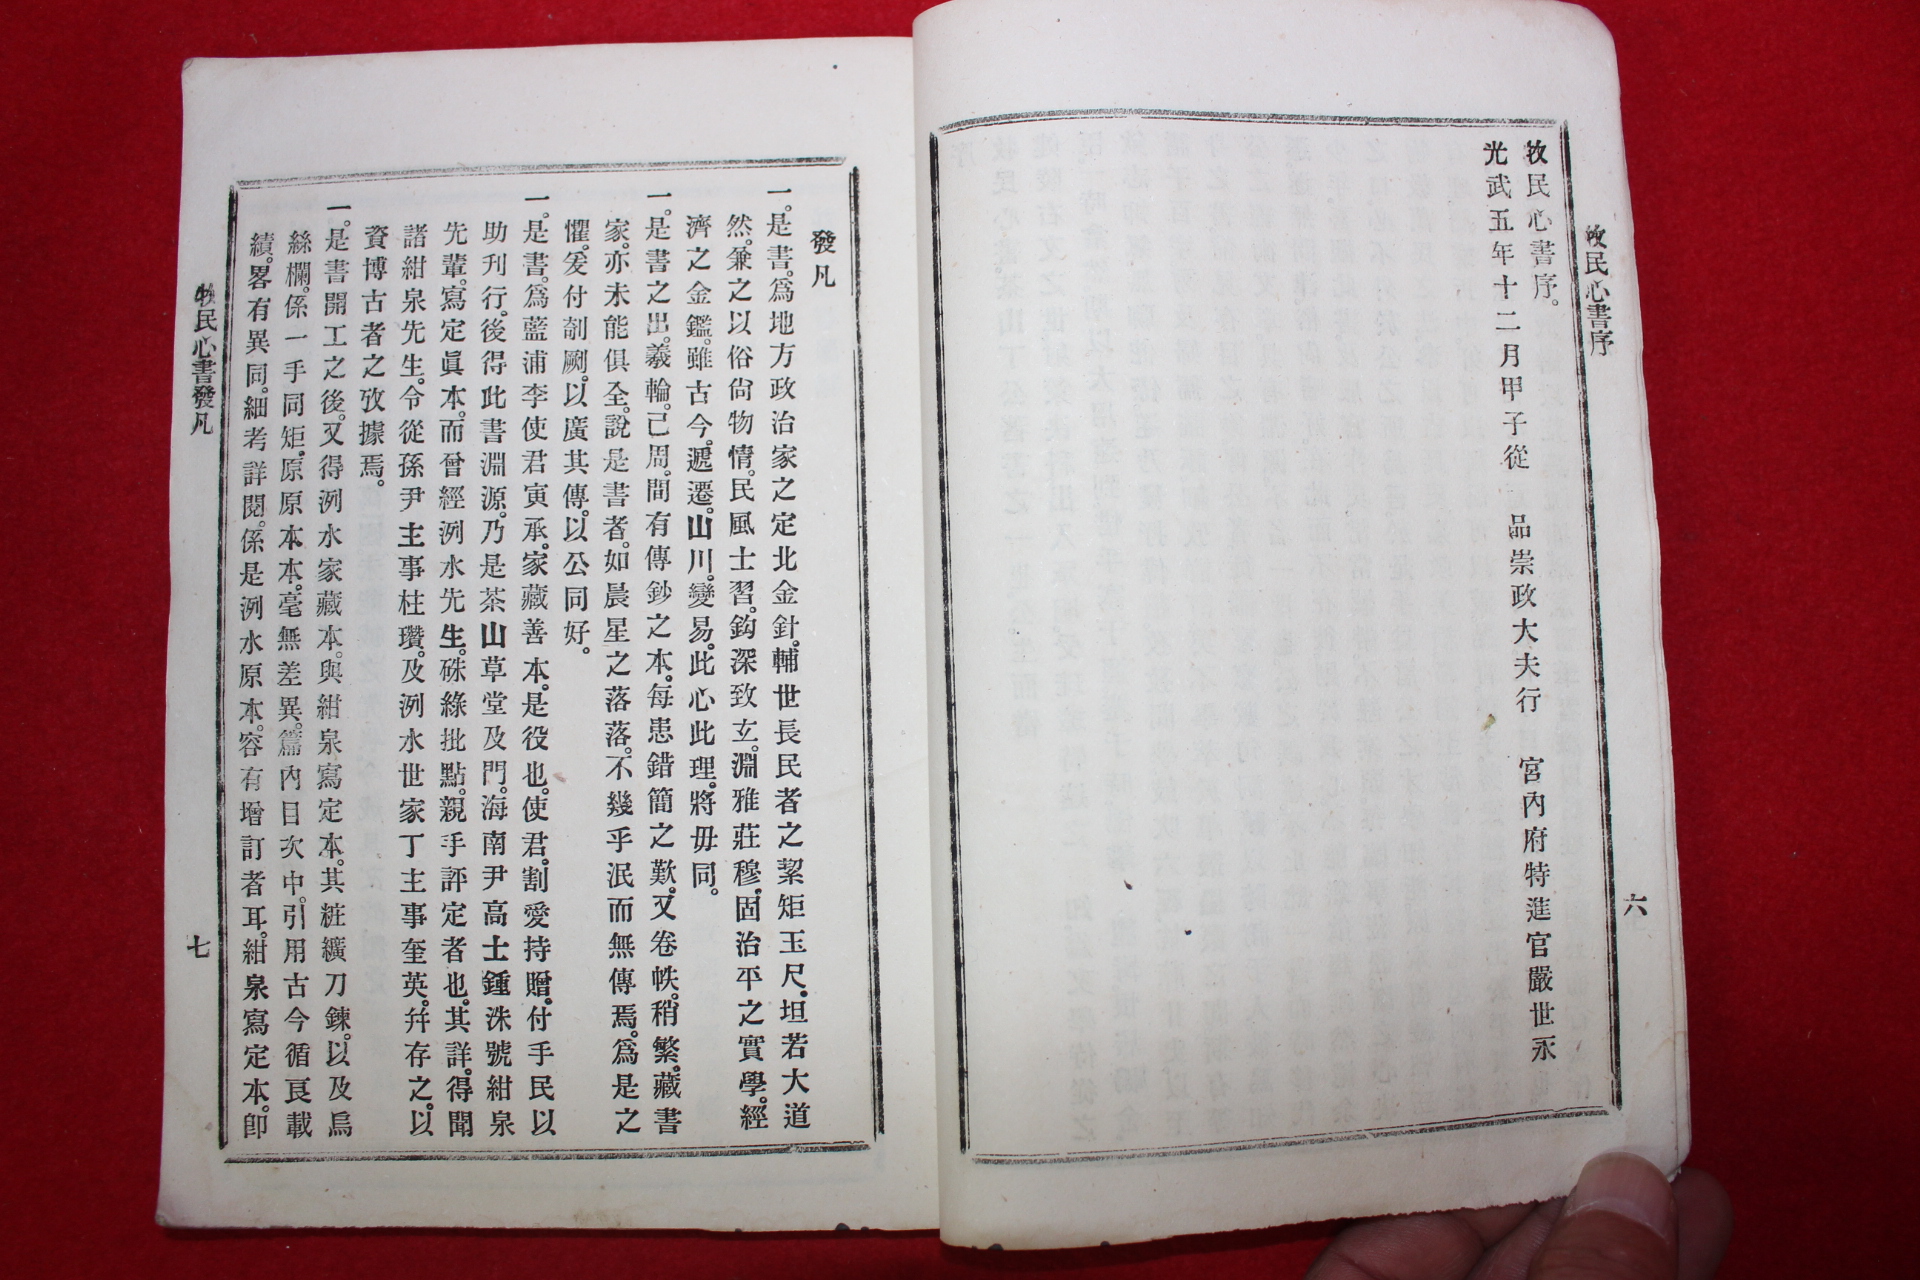 牧民心書序
六
牧民心書序。
光武五年十二月甲子從 品崇政大夫行 宮內府特進官嚴世永
發凡
一。是書。爲地方政治家之定北金針。輔世長民者之絜矩玉尺。坦若大道
然。兼之以俗尙物情。民風士習。鈎深致玄。淵雅莊穆。固治平之實學。經
濟之金鑑。雖古今。遞遷。山川。變易。此心此理。將毋同。
一。是書之出。羲輪。己周。間有傳鈔之本。每患錯簡之歎。又卷帙。稍繁。藏書
家。亦未能俱全。說是書者。如晨星之落落。不幾乎泯而無傳焉。爲是之
懼。爰付剞劂。以廣其傳。以公同好。
一。是書。爲藍浦李使君寅承。家藏善本。是役也。使君。割愛持贈。付手民以
助刊行。後得此書淵源。乃是茶山草堂及門。海南尹高士鍾洙號紺泉
先輩。寫定眞本。而曾經洌水先生。硃綠批點。親手評定者也。其詳。得聞
諸紺泉先生。令從孫尹主事柱瓚。及洌水世家丁主事奎英。幷存之。以
資博古者之攷據焉。
一。是書開工之後。又得洌水家藏本。與紺泉寫定本。其粧纊刀鍊。以及烏
絲欄。係一手同矩。原原本本。毫無差異。篇內目次中。引用古今循良載
績。畧有異同。細考詳閱。係是洌水原本。容有增訂者耳。紺泉寫定本。卽
牧民心書發凡
七